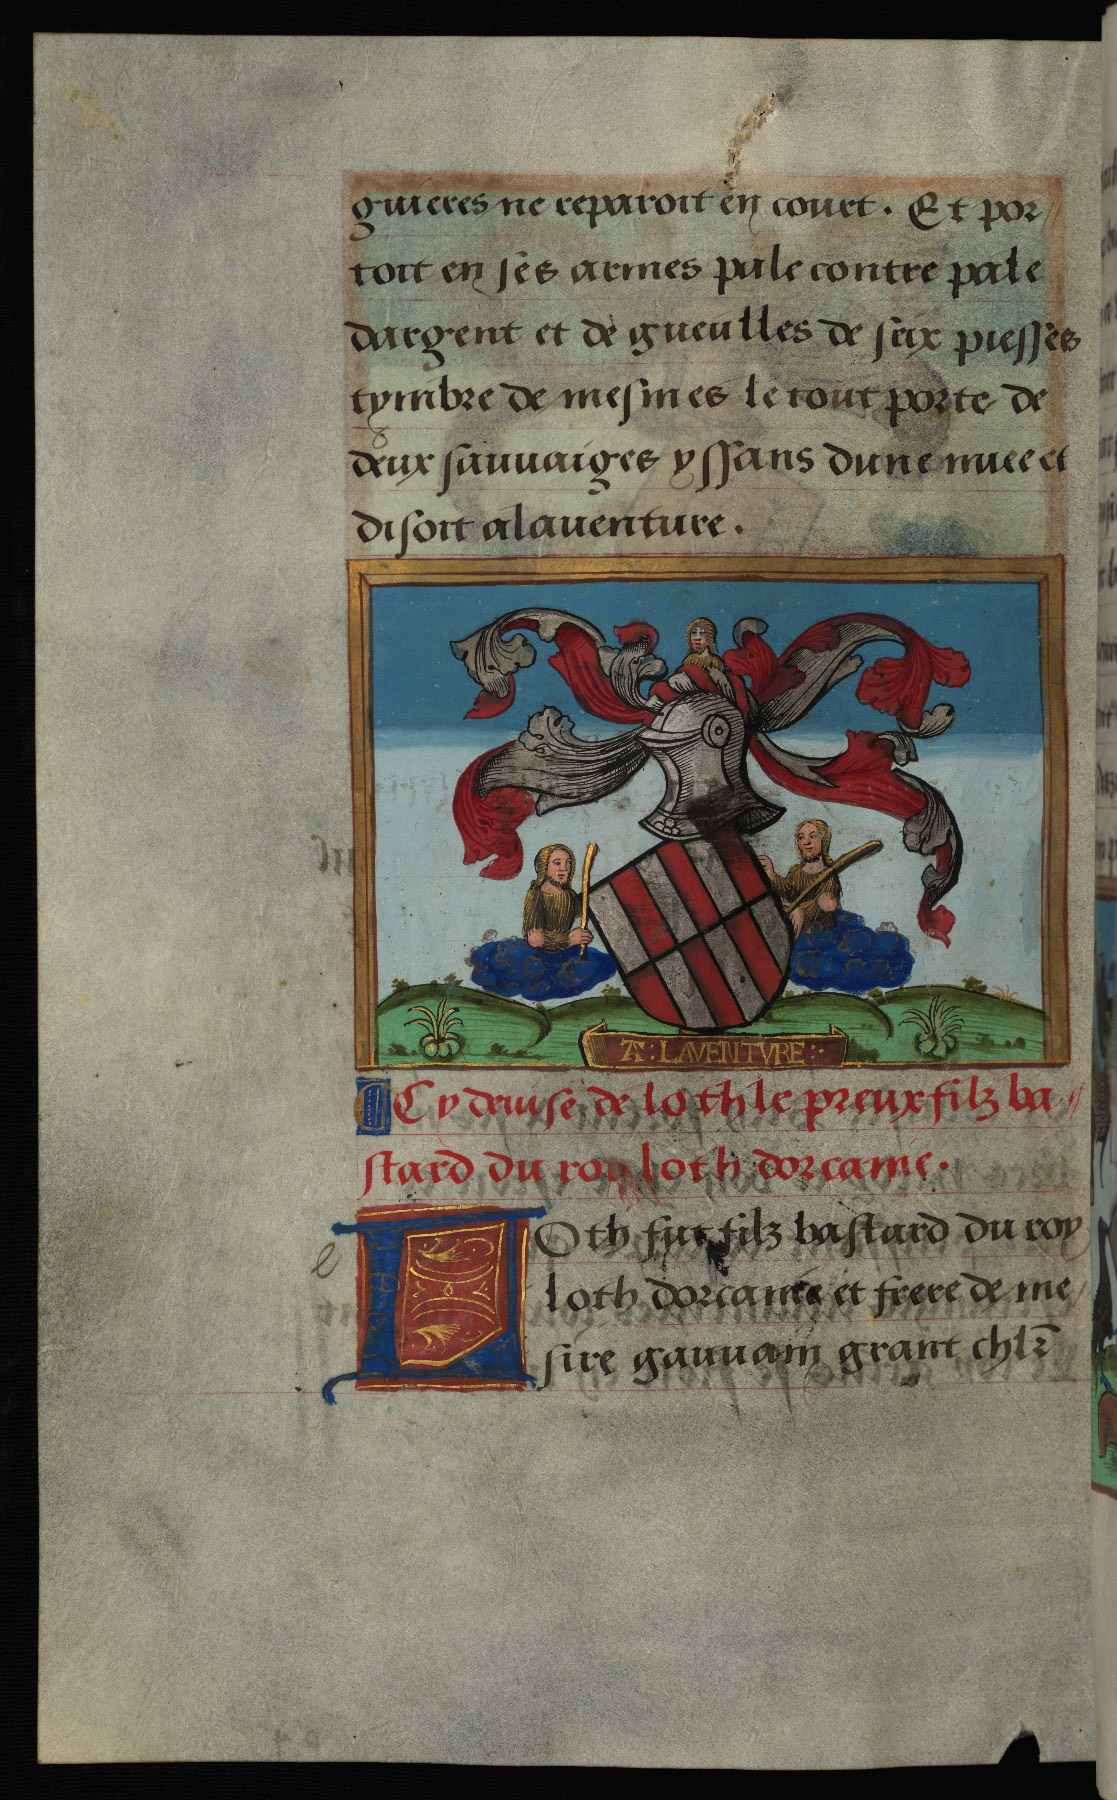 guieres ne reparoit en court. Et por
toit en ses armes pale contre pale
dargent et de gueulles de seix piesses
tymbre de mesmes le tout porte de
deux sauuaiges yssans dune nuee et
disoit alauenture.
A: LAVENTVRE:
Cy deuise de loth le preux filz ba
stard du roy loth dorcanie.
e
LOth fut filz bastard du roy
loth dorcanie et frere de me
sire gauuain grant chlr̄